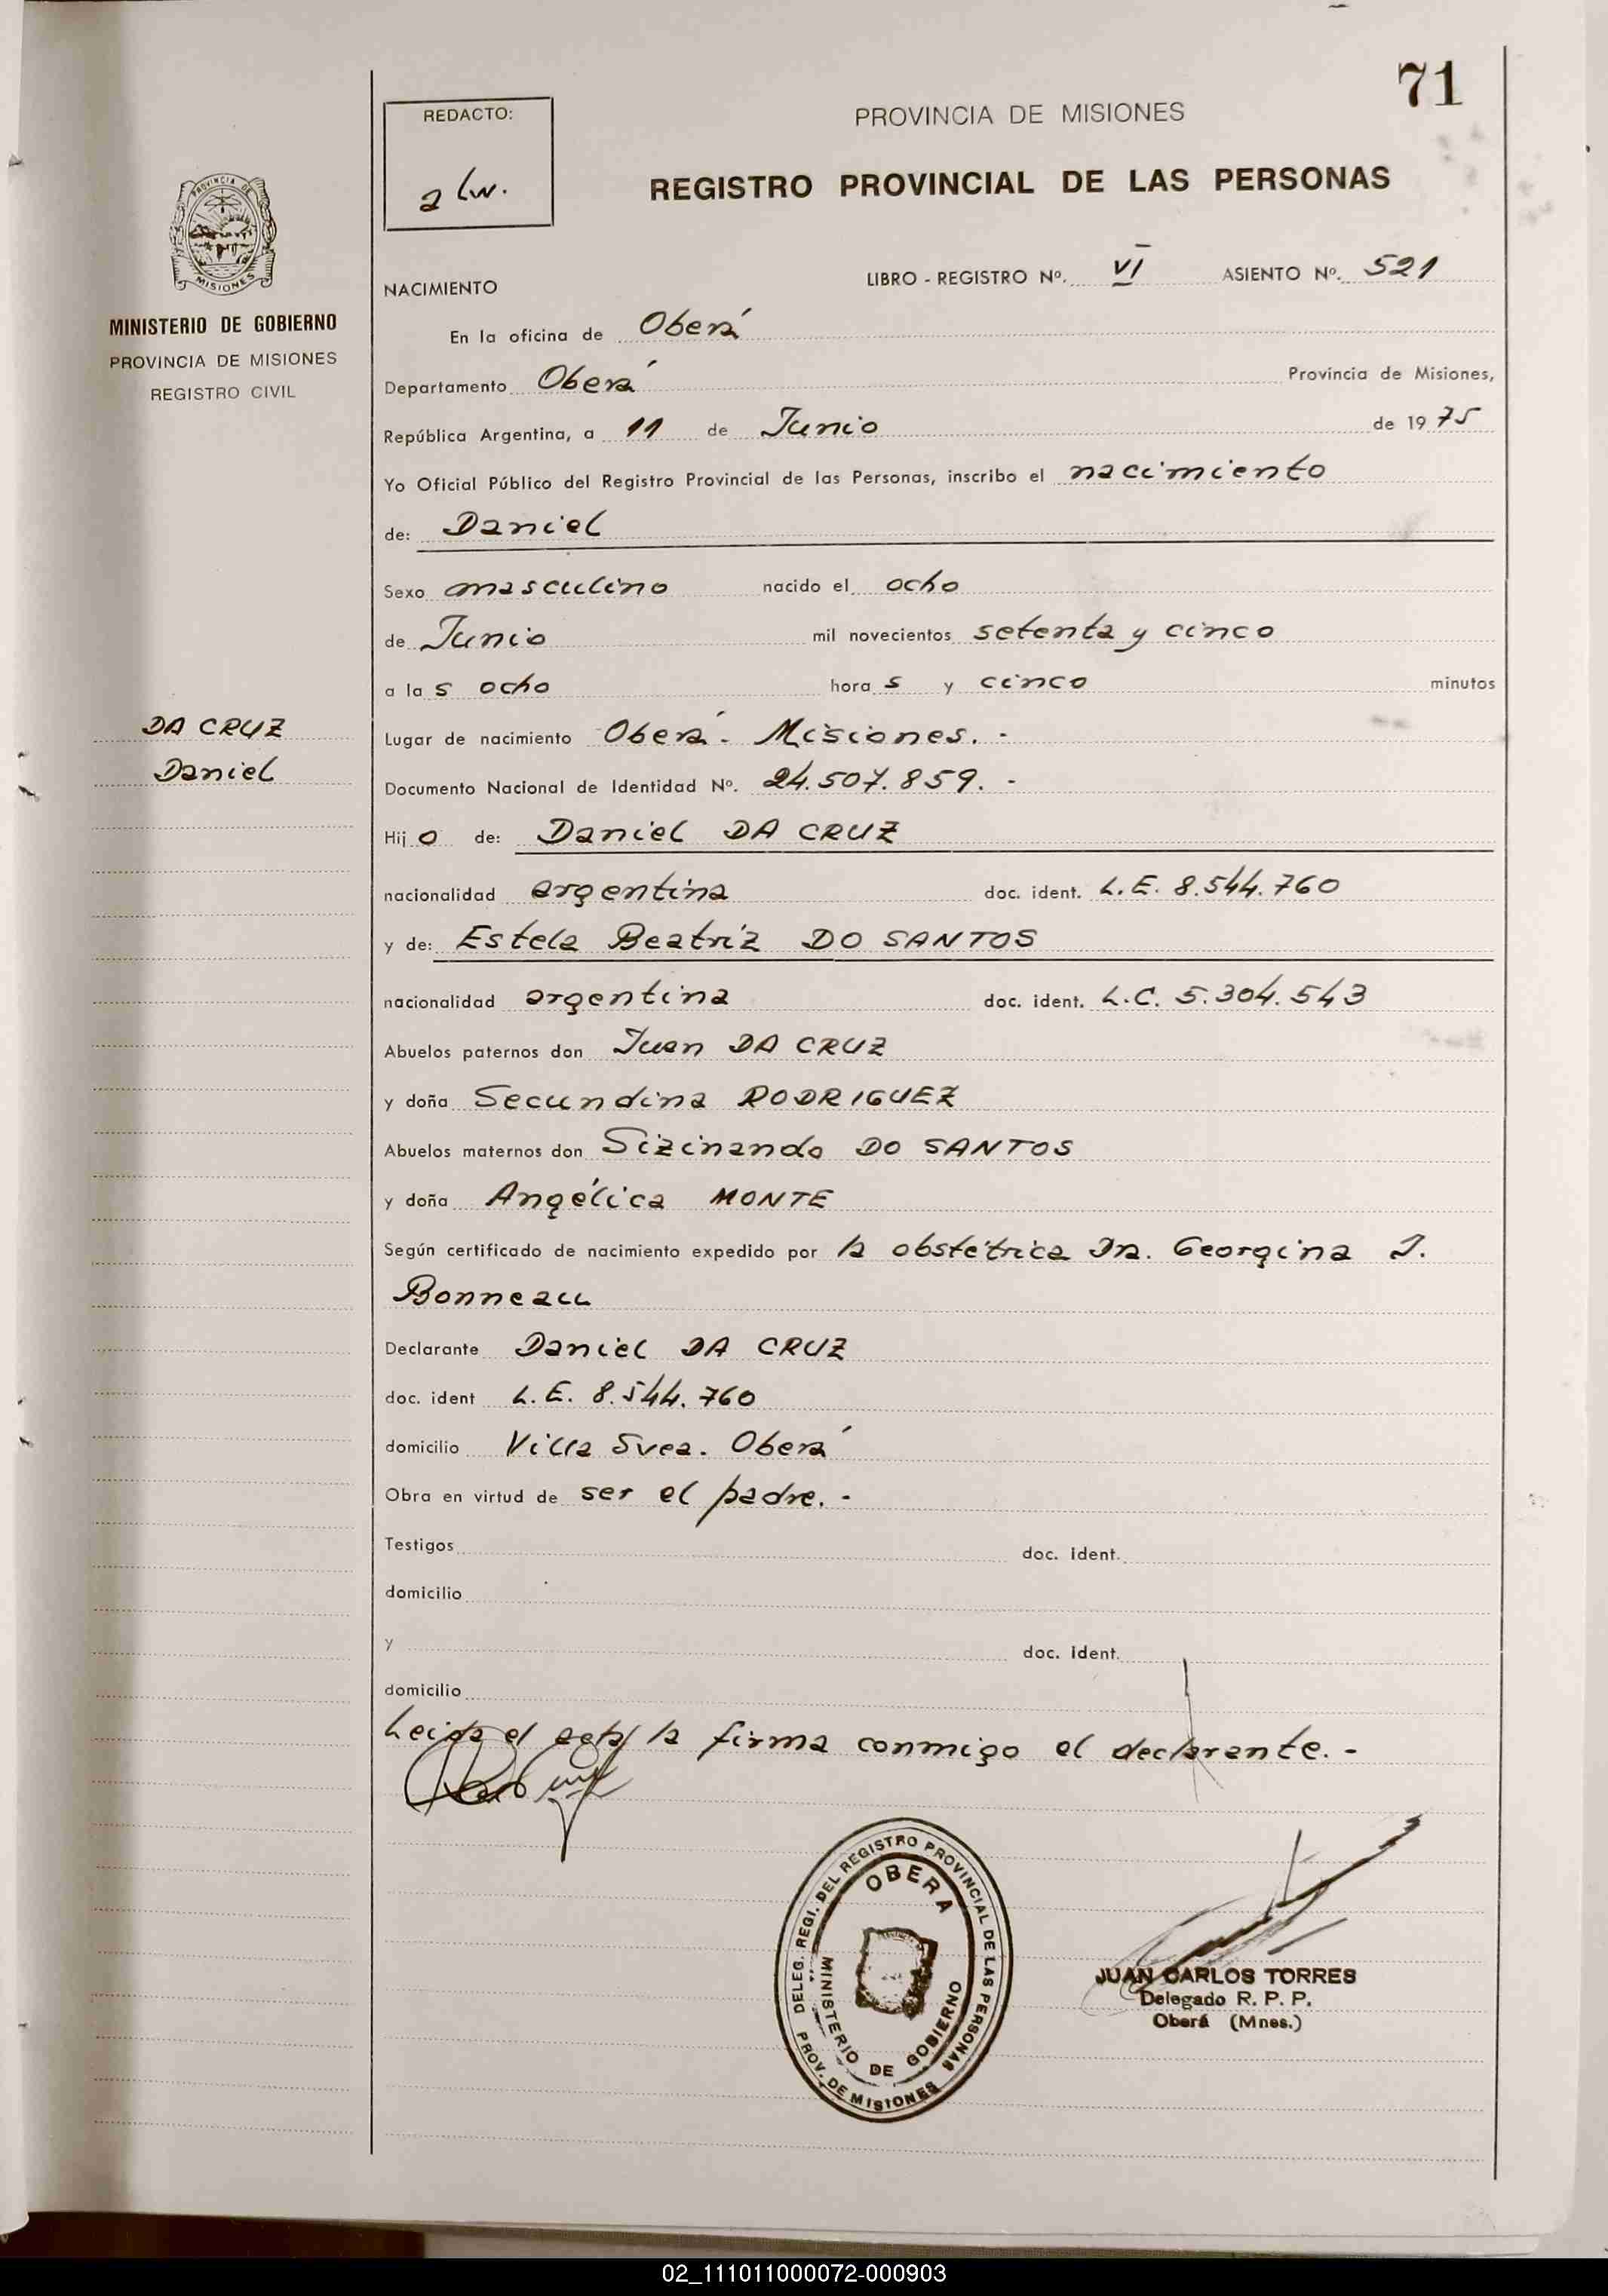 71
REDACTO:
PROVINCIA DE MISIONES
REGISTRO PROVINCIAL DE LAS PERSONAS
PROVINCIA DE
MISIONES
MINISTERIO DE GOBIERNO
PROVINCIA DE MISIONES
REGISTRO CIVIL
NACIMIENTO LIBRO - REGISTRO Nº. VI ASIENTO Nº. 521
En la oficina de Oberá
Departamento Oberá Provincia de Misiones,
República Argentina, a 11 de Junio de 1975
Yo Oficial Público del Registro Provincial de las Personas, inscribo el nacimiento
de: Daniel
Sexo masculino nacido el ocho
de Junio mil novecientos setenta y cinco
a las ocho horas y cinco minutos
DA CRUZ
Daniel
Lugar de nacimiento Oberá - Misiones. -
Documento Nacional de Identidad Nº. 24.507.859. -
Hijo de: Daniel DA CRUZ
nacionalidad argentina doc. ident. L.E. 8.544.760
y de: Estela Beatríz DO SANTOS
nacionalidad argentina doc. ident. L.C. 5.304.543
Abuelos paternos don Juan DA CRUZ
y doña Secundina RODRIGUEZ
Abuelos maternos don Sizinando DO SANTOS
y doña Angélica MONTE
Según certificado de nacimiento expedido por la obstétrica Dra. Georgina J.
Bonneau
Declarante Daniel DA CRUZ
doc. ident L.E. 8.544.760
domicilio Villa Svea. Oberá
Obra en virtud de ser el padre. -
Testigos doc. ident.
domicilio
y doc. ident.
domicilio
Leida el acta la firma conmigo el declarante. -
DELEG. REGI. DEL REGISTRO PROVINCIAL DE LAS PERSONAS
OBERA
MINISTERIO DE GOBIERNO
PROV. DE MISIONES
JUAN CARLOS TORRES
Delegado R. P. P.
Oberá (Mnes.)
02_111011000072-000903